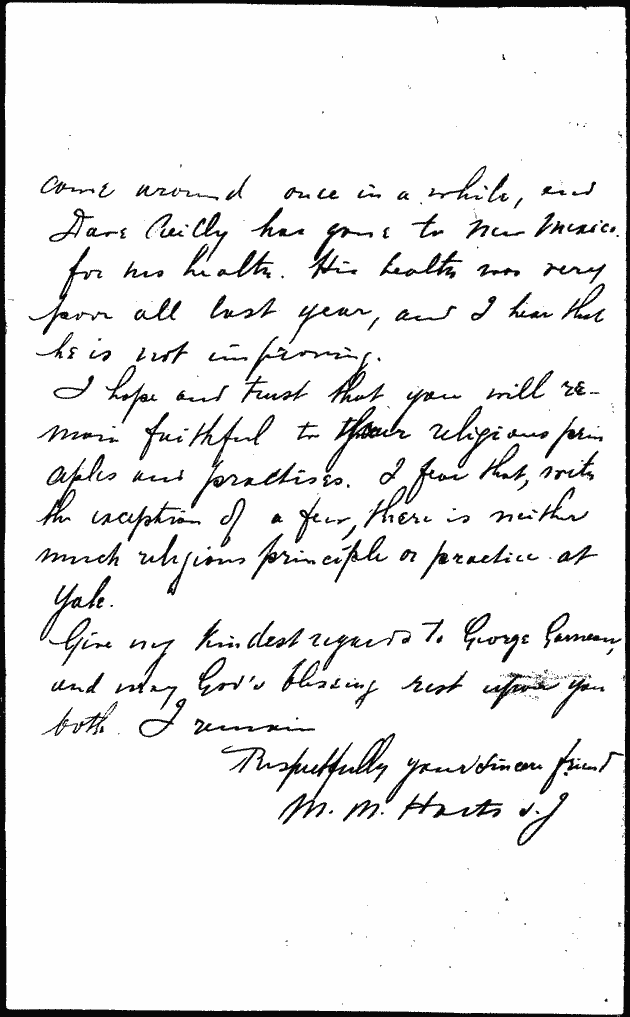 come around once in a while, and
Dave Reilly has gone to New Mexico.
for his health. His health was very
poor all last year, and I hear that
he is not improving.
I hope and trust that you will re-
main faithful to your religious prin
ciples and practises. I fear that, with
the exception of a few, there is neither
much religious principle or practice at
Yale.
Give my kindest regards to George Garneau,
and may God's blessing rest upon you
both. I remain
Respectfully your sincere friend
M. M. Harts S.J